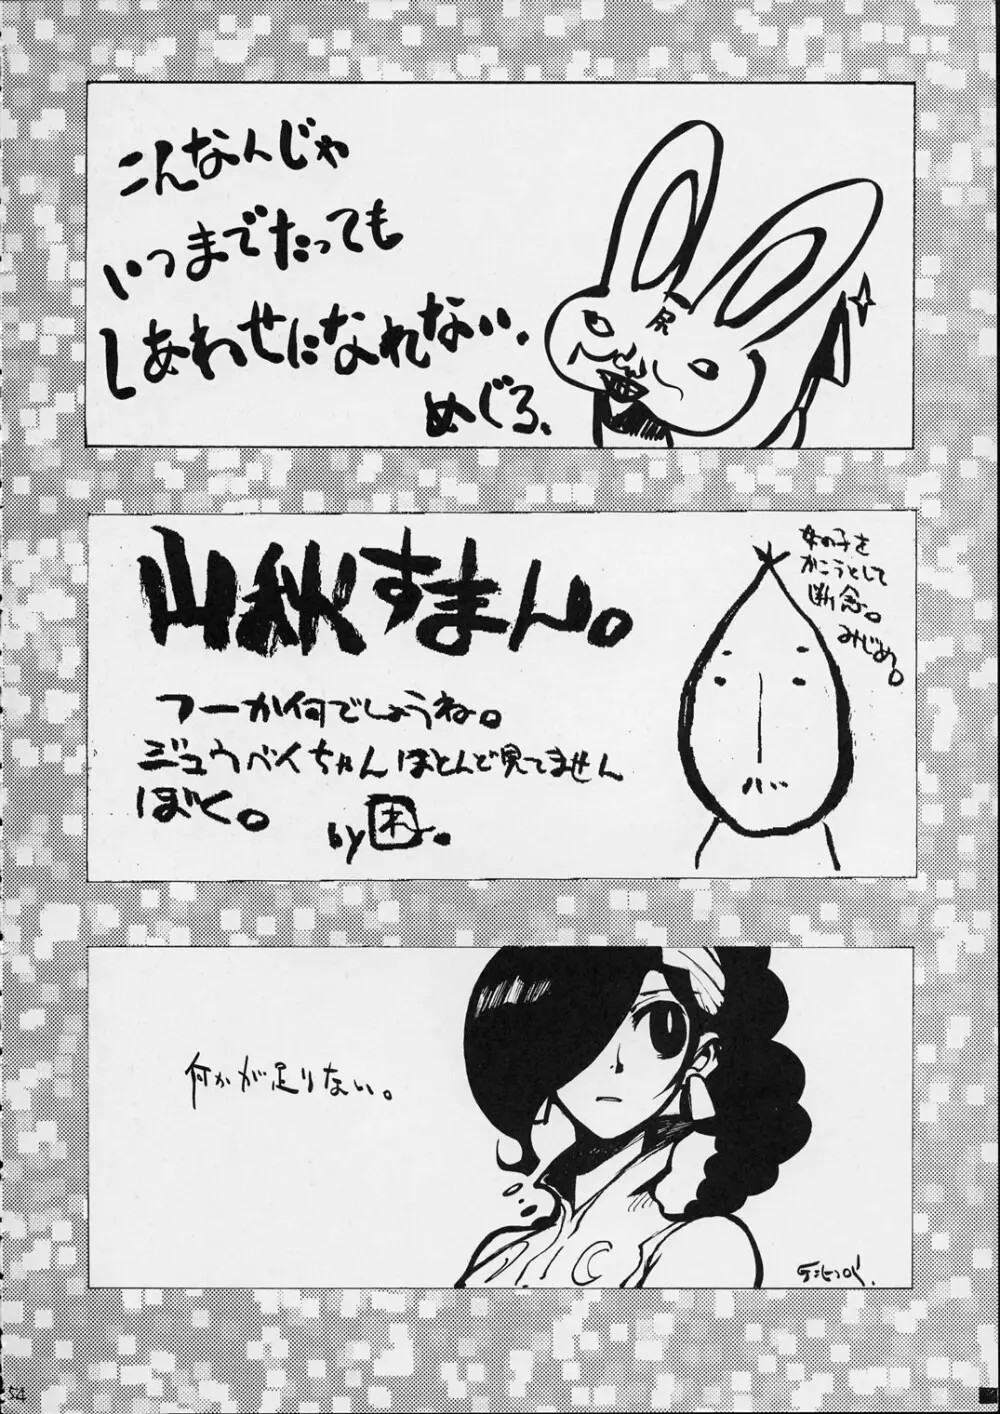 こんなんじゃ
いつまでたっても
しあわせになれない.
めぐる、
尻
山秋すまん。
フーか何でしょうね。
ジュウベイちゃんほとんど見てません
ぼく。
by困。
女の子を
かこうとして
断念。
みじめ。
何かが足りない。
54